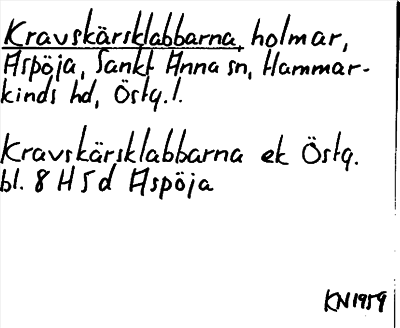 Kravskärsklabbarna, holmar,
Aspöja, Sankt Anna sn, Hammar-
kinds hd, Östg.l.
Kravskärsklabbarna ek Östg.
bl. 8 H 5 d Aspöja
KN 1959